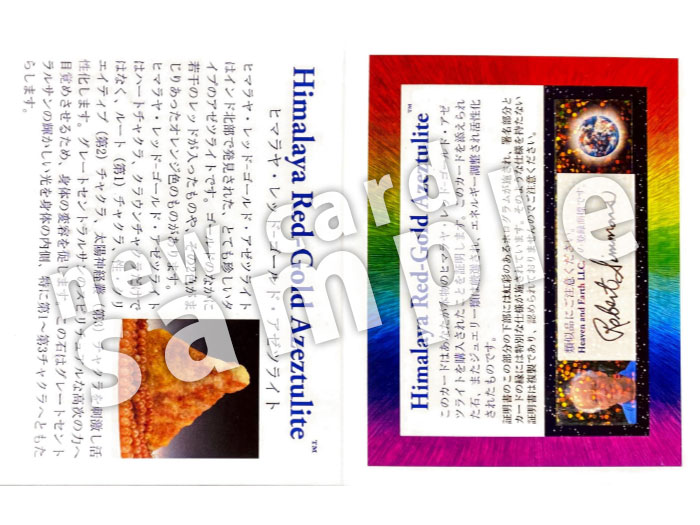 Himalaya Red-Gold Azeztulite™
ヒマラヤ・レッド・ゴールド・アゼツライト
ヒマラヤ・レッド・ゴールド・アゼツライト
はインド北部で発見された、とても珍しいタ
イプのアゼツライトです。ゴールドのなかに
若干のレッドが入ったものや、その2色が混
じりあったオレンジ色のものがあります。
ヒマラヤ・レッド・ゴールド・アゼツライト
はハートチャクラ、クラウンチャクラだけで
はなく、ルート（第1）チャクラ、性・クリ
エイティブ（第2）チャクラ、太陽神経叢（第3）チャクラを刺激し活
性化します。グレートセントラルサンのスピリチュアルな高次の力へ
目覚めさせるため、身体の変容を促します。この石はグレートセント
ラルサンの輝かしい光を身体の内側、特に第1～第3チャクラへともた
らします。
Himalaya Red-Gold Azeztulite™
このカードはあなたが本物のヒマラヤ・レッド・ゴールド・アゼ
ツライトを購入されたことを証明します。このカードを添えられ
た石、またジュエリー類は厳選され、エネルギー調整され活性化
されたものです。
証明書のこの部分の下部には虹彩のあるホログラムが施され、署名部分と
カードの縁には特別な仕様が施されています。そのような仕様を持たない
証明書は複製であり、認められておりませんのでご注意ください。
類似品にご注意ください。
Heaven and Earth LLC.
登録商標です
Robert Simmons
sample